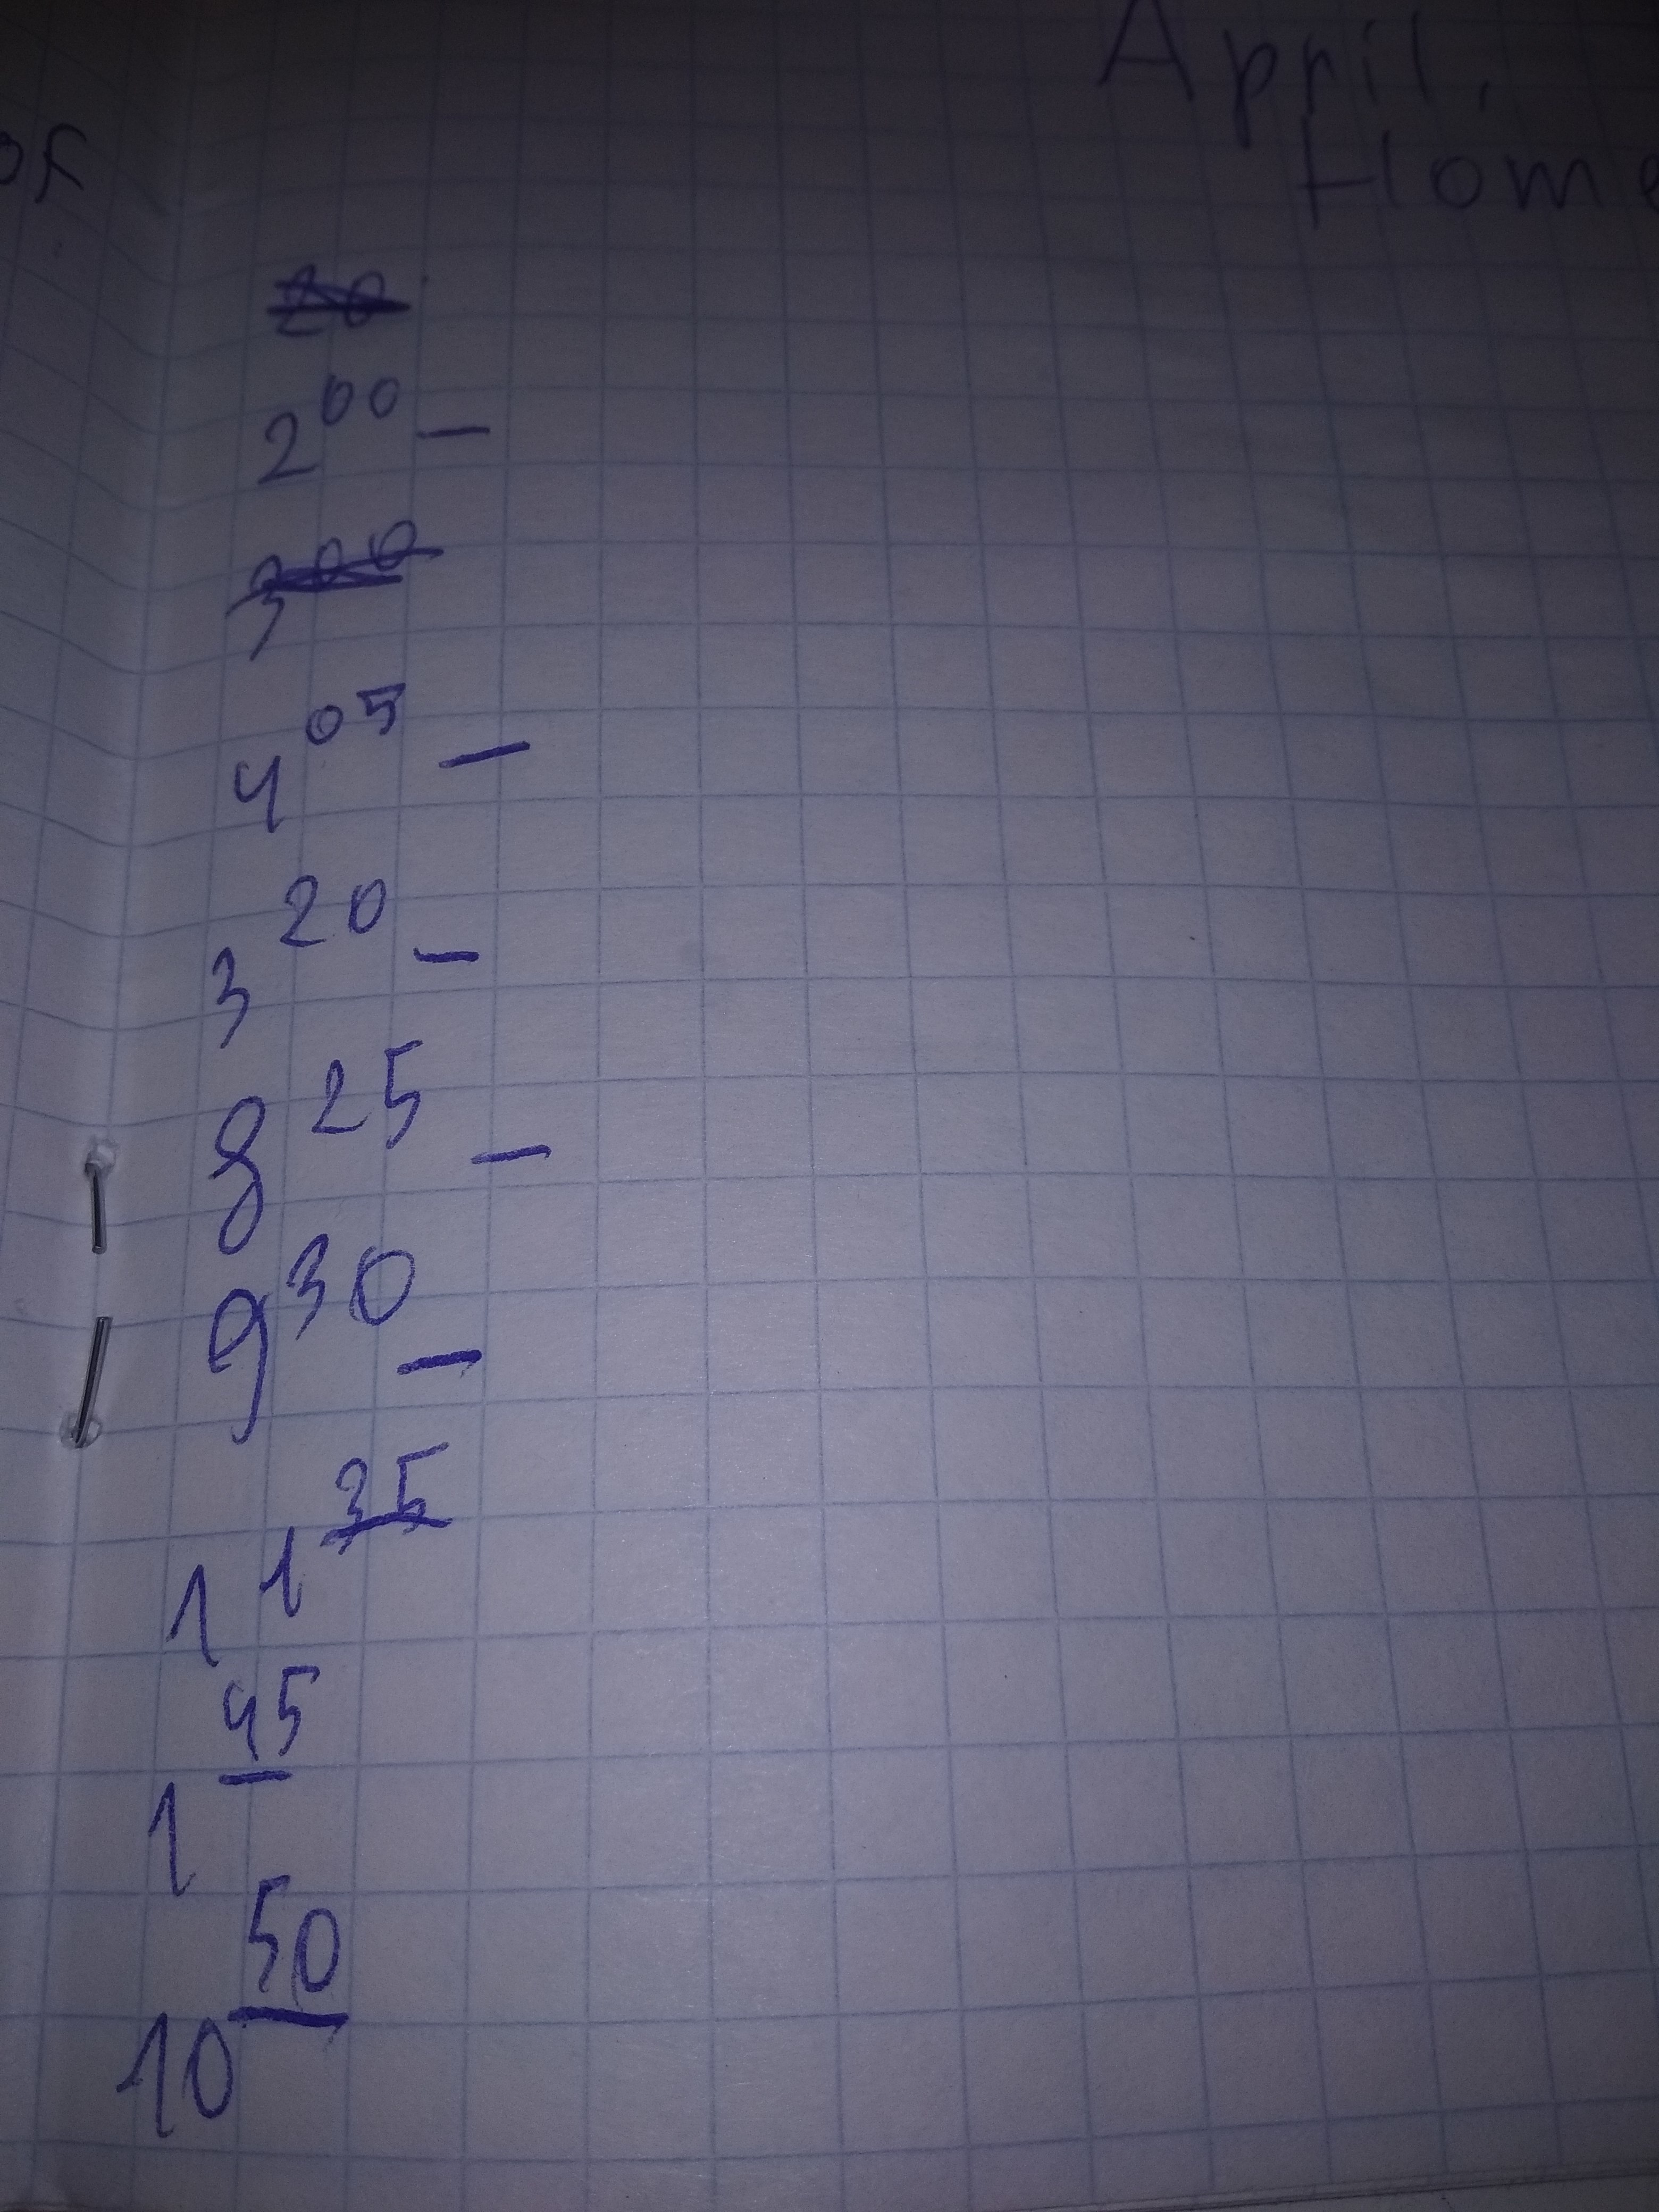 April,
Home
of
2⁰⁰ –
4⁰⁵ –
3²⁰ –
8²⁵ –
9³⁰ –
11³⁵
1⁴⁵
10⁵⁰